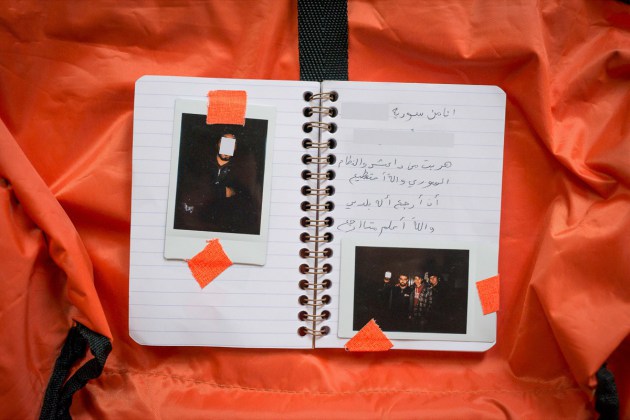 انا من سوريا
هربت من داعش والنظام
السوري والآ أستطيع
أن أرجع ألا بلدي
والآ أهلي